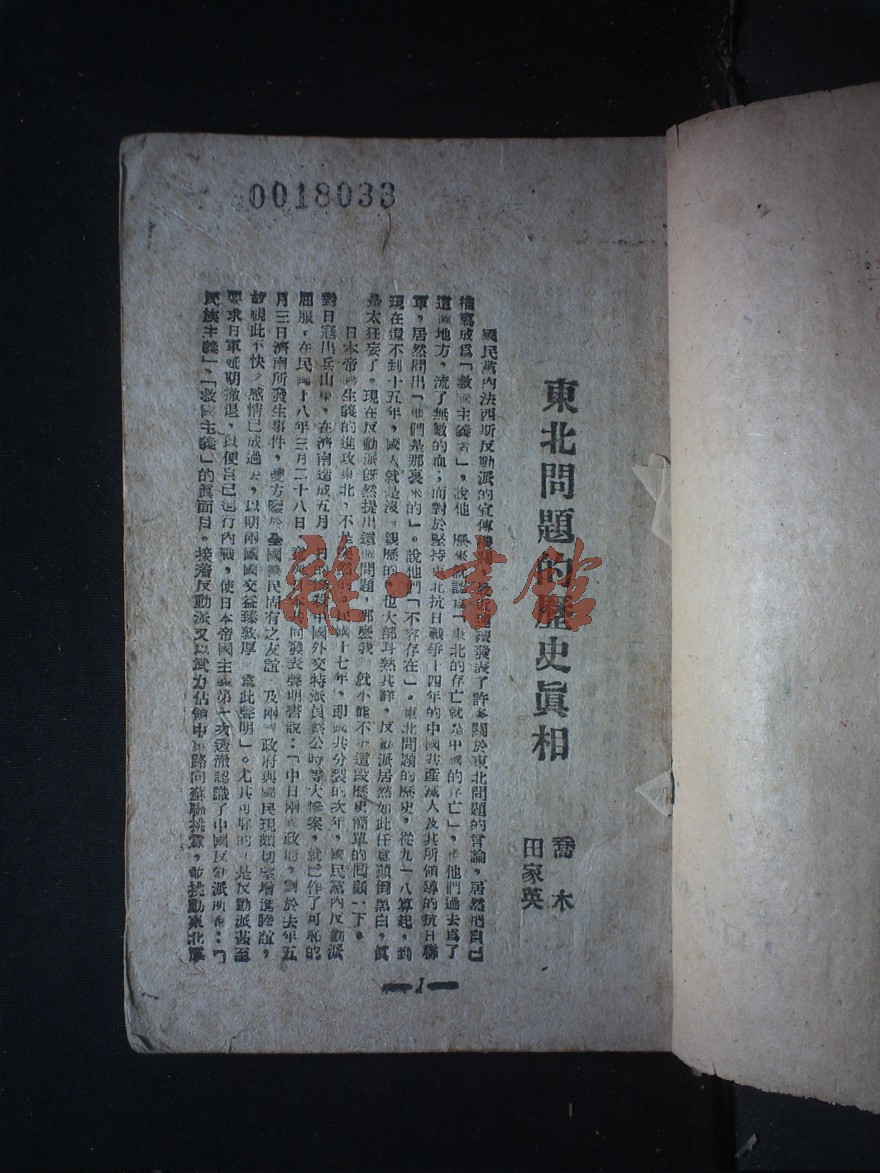 0018033
東北問題的歷史眞相
喬木
田家英
國民黨內法西斯反動派的宣傳發表了許多關於東北問題的言論，居然把自己
描寫成爲「救國主義者」，說他們歷來就認爲「東北的存亡就是中國的存亡」，他們過去爲了
這個地方，流了無數的血；而對於堅持東北抗日戰爭十四年的中國共產黨人及其所領導的抗日聯
軍，居然問出「他們是那裏來的」。說他們「不容存在」。東北問題的歷史，從九一八算起，到
現在還不到十五年，國人就是沒親歷的，也大部耳熟其詳，反動派居然如此任意顚倒黑白，眞
是太狂妄了。現在反動派旣然提出這個問題，那麼我們就不能不把這段歷史簡單的回顧一下。
日本帝國主義的進攻東北，不是突然的。民國十七年，卽國共分裂的次年，國民黨內反動派
對日寇出兵山東，在濟南造成五月日的中國外交特派員蔡公時等大慘案，就已作了可恥的
屈服，在民國十八年三月二十八日，竟與日本共同發表聲明書說：「中日兩國政府，對於去年五
月三日濟南所發生事件，雙方鑒於全國國民固有之友誼，及兩國政府與國民現頗切望增進睦誼，
故視此不快之感情已成過去，以期兩國國交益臻敦厚，爲此聲明」。尤其可恥的，是反動派甚至
要求日軍延期撤退，以便自己進行內戰，使日本帝國主義第一次透澈認識了中國反動派所謂「
民族主義」，「救國主義」的眞面目。接着反動派又以武力佔領中東路向蘇聯挑釁，並挑動東北軍
1
雜·書館